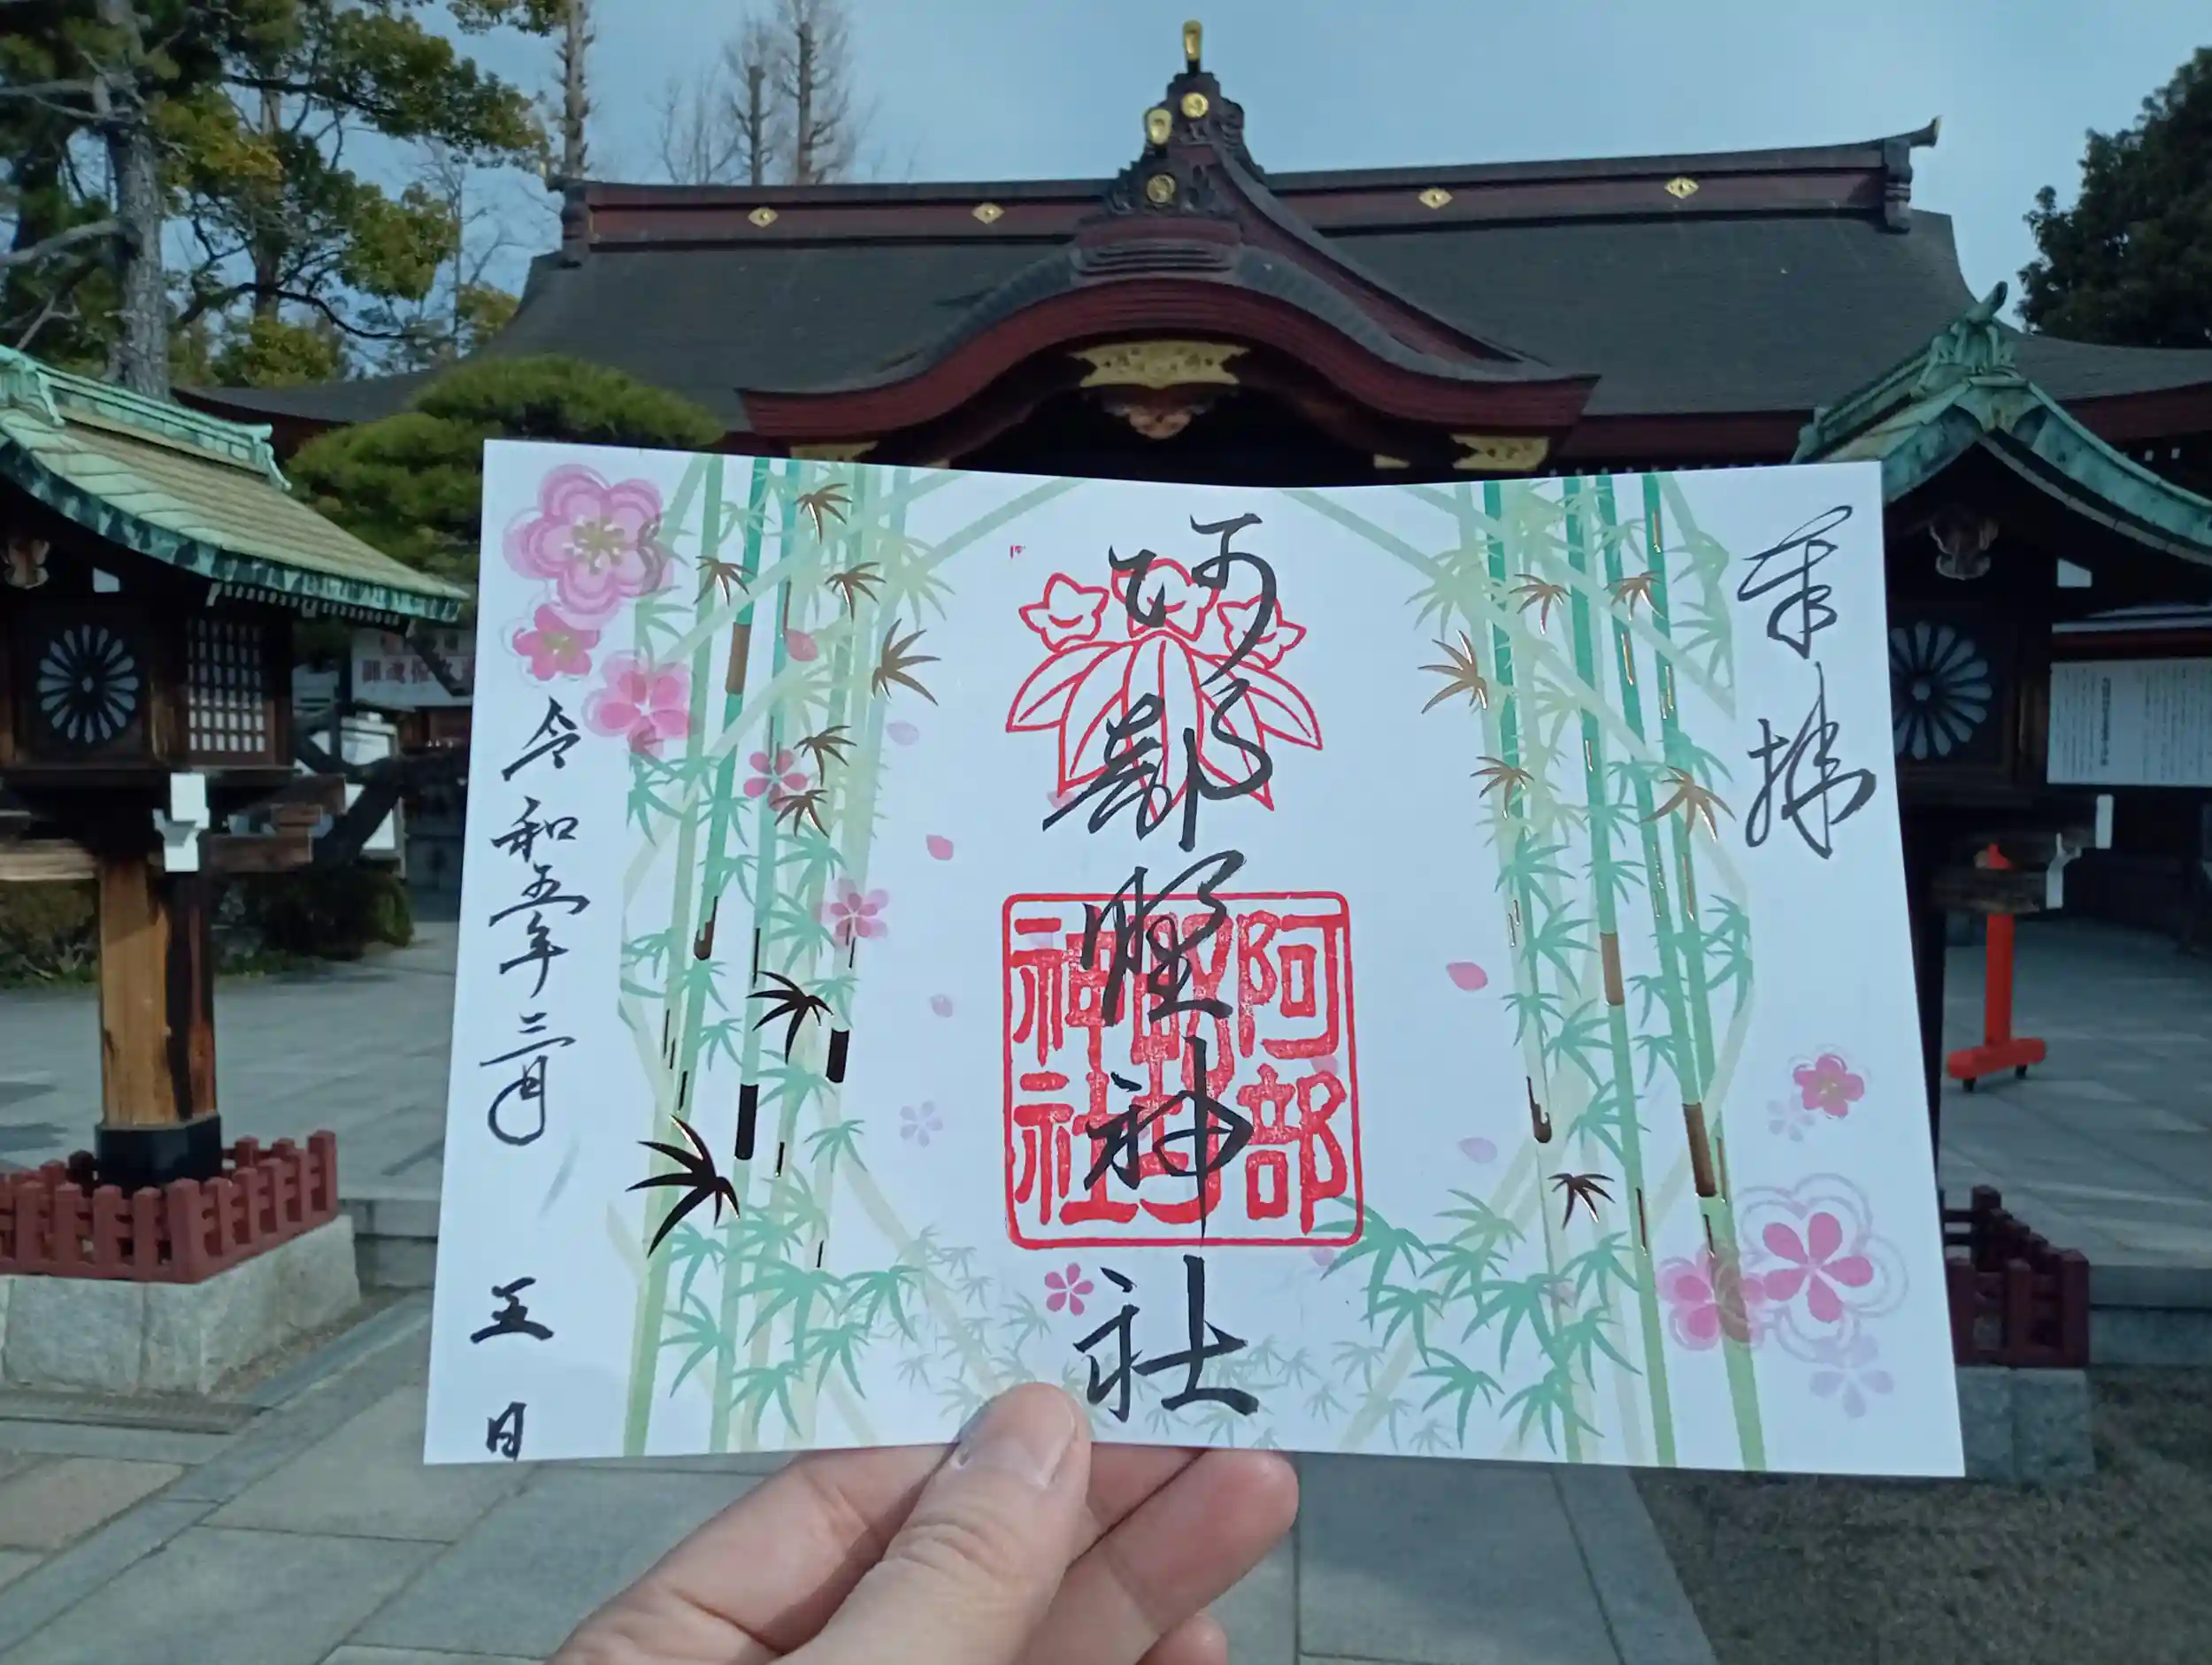 奉拝
阿部野神社
阿部
野
神社
令和五年三月
五日